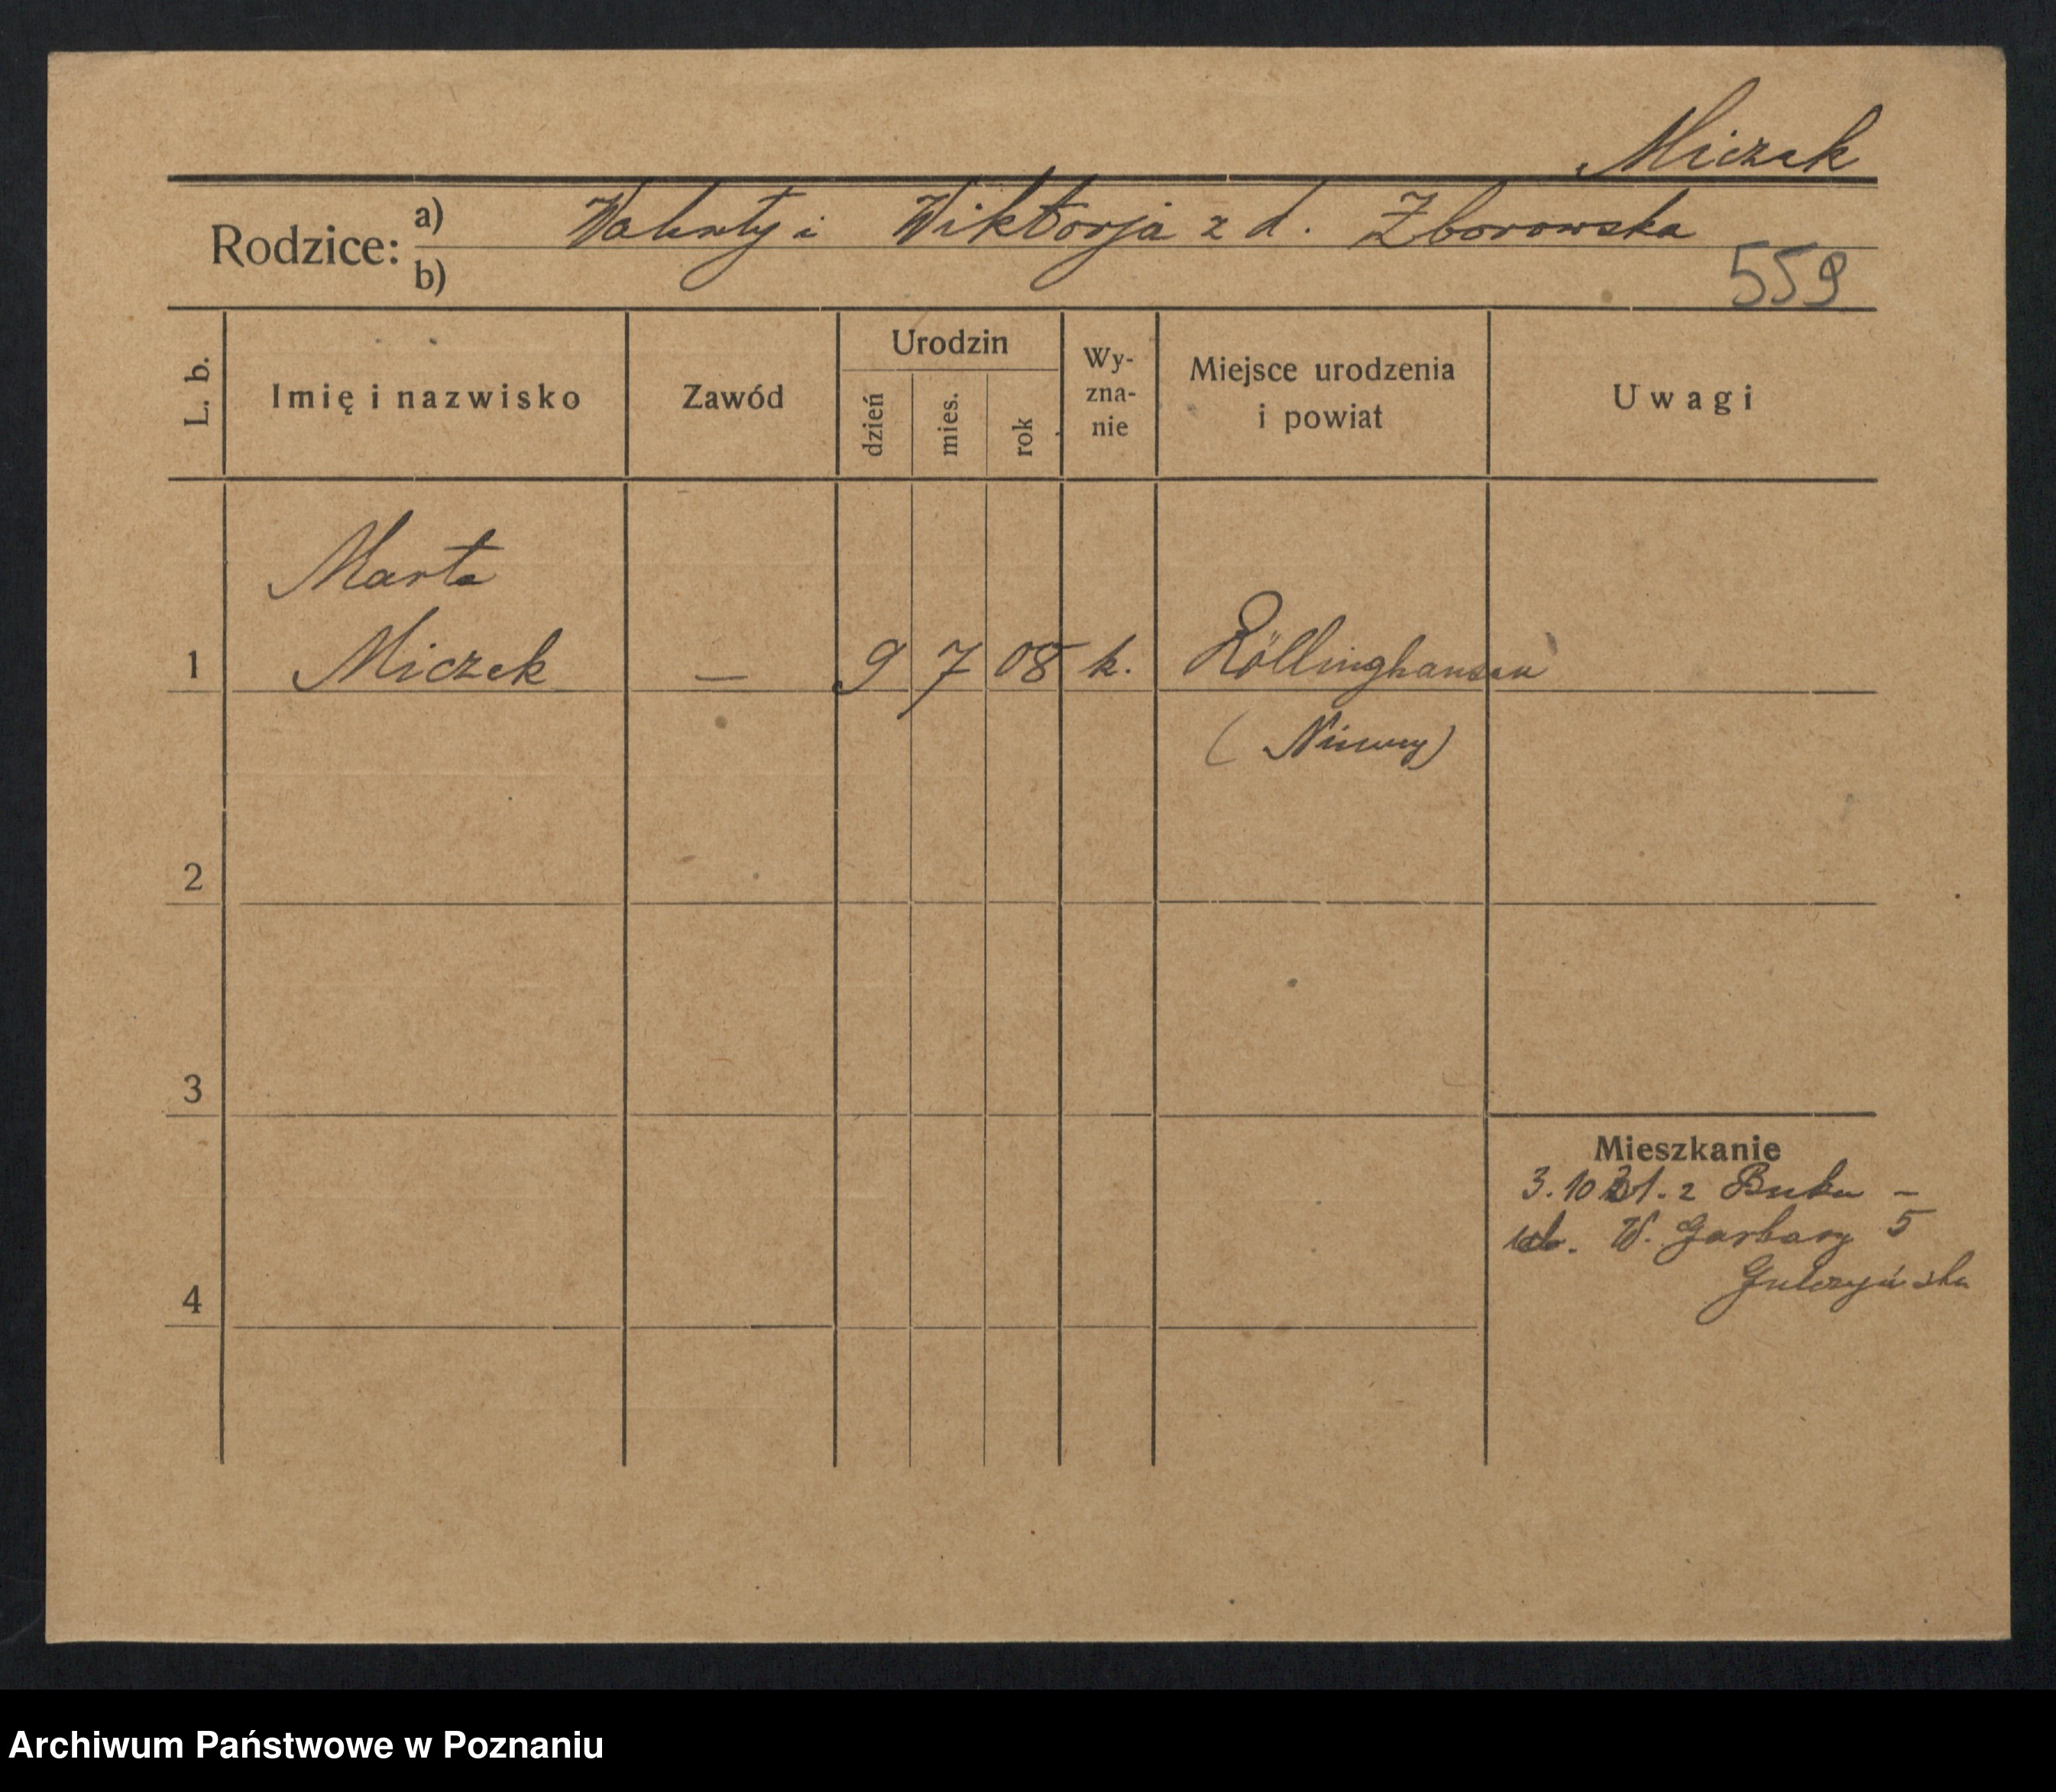 Miczek
Rodzice: a) Walenty i Wiktorja z d. Zborowska
b)
559
L. b.
Imię i nazwisko
Zawód
Urodzin
dzień
mies.
rok
Wy-
zna-
nie
Miejsce urodzenia
i powiat
Uwagi
Marta
1 Miczek — 9 7 08 k. Röllinghausen
(Niemcy)
2
3
Mieszkanie
3.10 31. z Buku –
ul. W. Garbary 5
Gulczyńska
4
Archiwum Państwowe w Poznaniu